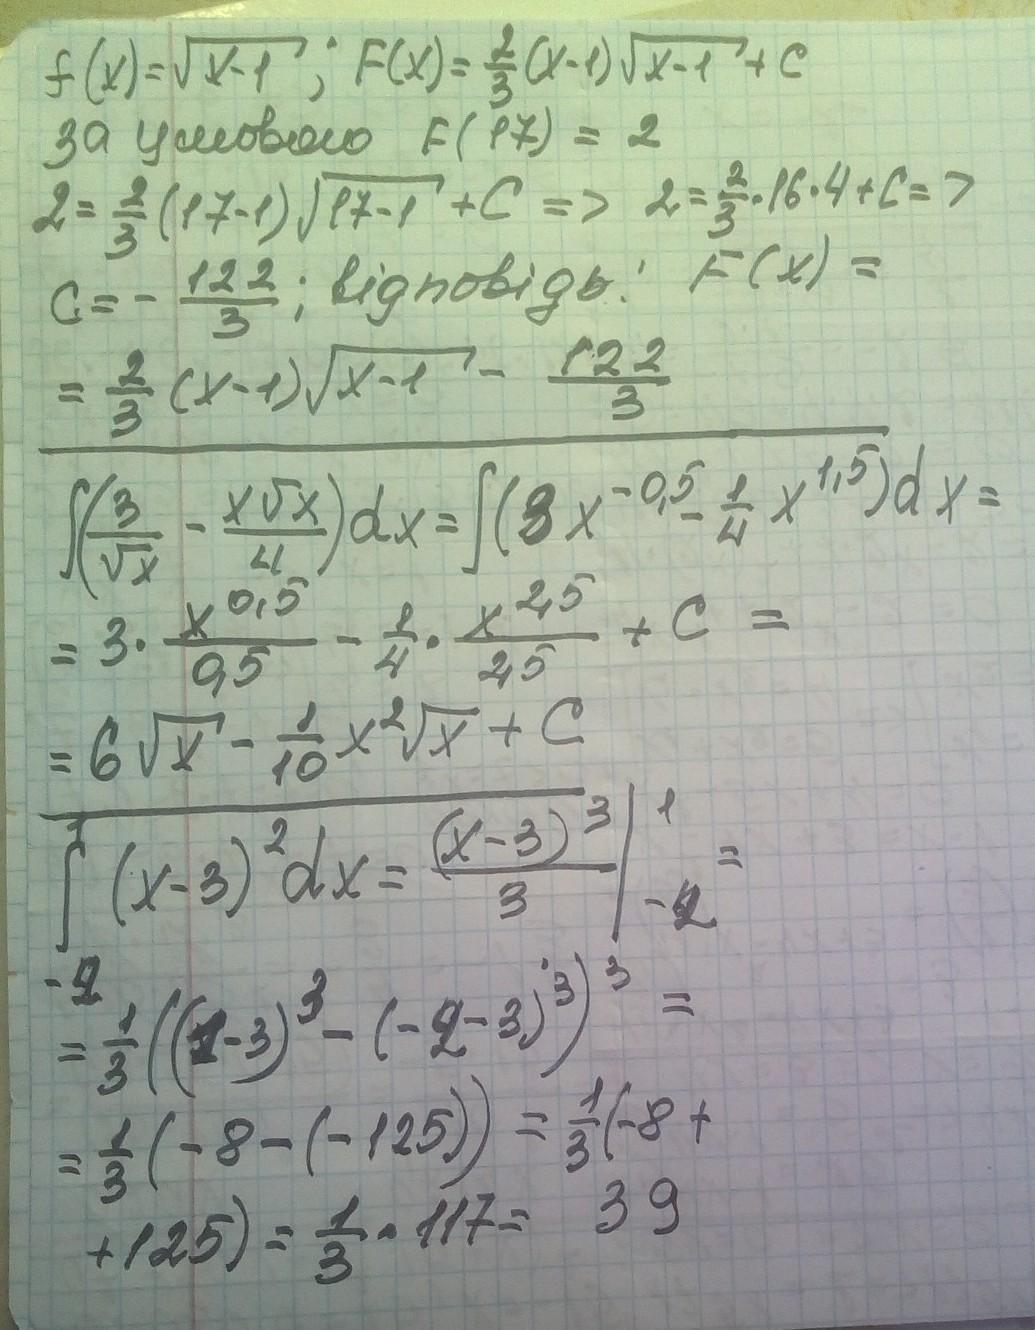 f(x)=√(x-1); F(x)=2/3(x-1)√(x-1)+C
за умовою F(17)=2
2=2/3(17-1)√(17-1)+C=> 2=2/3·16·4+C=>
C=-122/3; відповідь: F(x)=
=2/3(x-1)√(x-1)-122/3
∫(3/√x-x√x/4)dx=∫(3x^(-0,5)-1/4x^(1,5))dx=
=3·x^(0,5)/0,5-1/4·x^(2,5)/2,5+C=
=6√x-1/10x²√x+C
∫_(-2)^1(x-3)²dx=(x-3)³/3|_(-2)^1=
=1/3((1-3)³-(-2-3)³)³=
=1/3(-8-(-125))=1/3(-8+
+125)=1/3·117=39